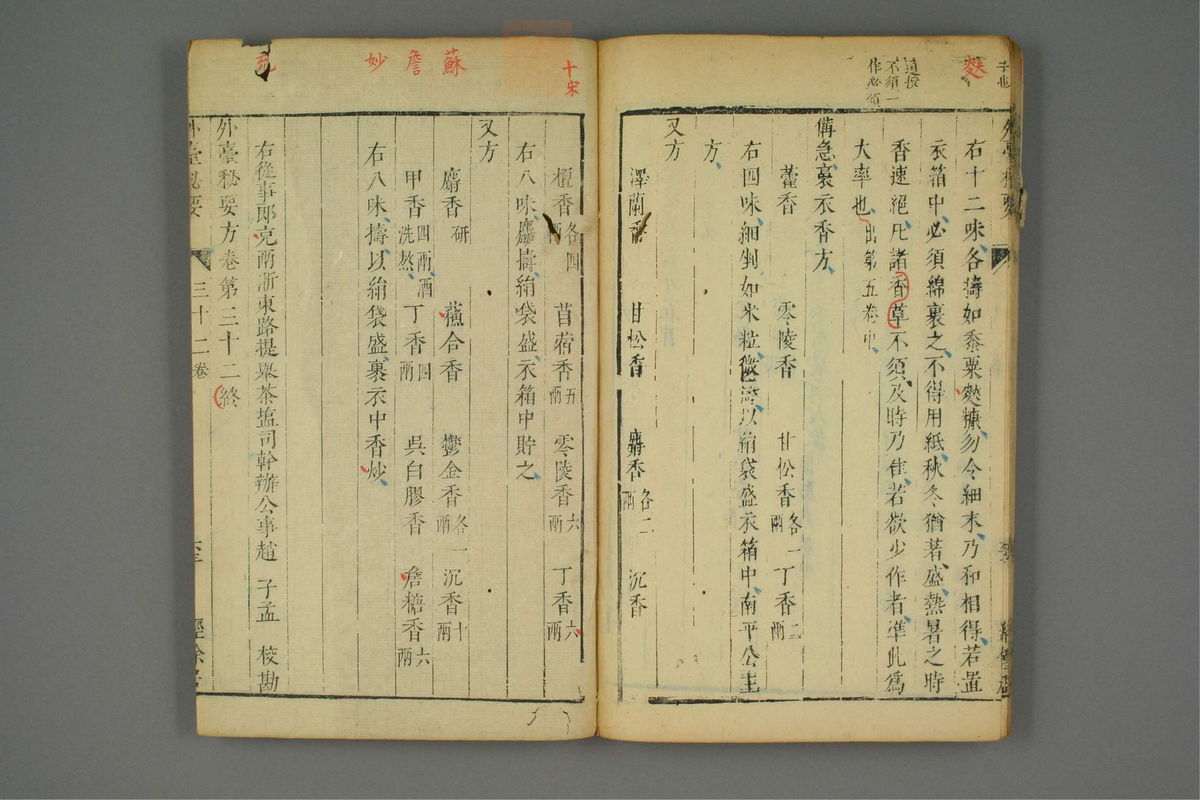 子也
麥
這按
不須一
作必須
右十二味各擣如黍粟麩糠勿令細末乃和相得若置
衣箱中必須綿裹之不得用紙秋冬猶著盛熱暑之時
香速絕凡諸香草不須及時乃佳若欲少作者準此為
大率也出第五卷中
備急裛衣香方
藿香 零陵香 甘松香各一兩 丁香二兩
右四味細剉如米粒微擣以絹袋盛衣箱中南平公主
方
又方
澤蘭香 甘松香 麝香各二兩 沉香
十宋
檀香各四兩 苜蓿香五兩 零陵香六兩 丁香六兩
右八味麤擣絹袋盛衣箱中貯之
又方
蘇
麝香研 蘓合香 鬱金香各一兩 沉香十兩
詹
甲香四兩酒洗熬 丁香四兩 吳白膠香 詹糖香六兩
妙
右八味擣以絹袋盛裹衣中香炒
右從事郎克兩浙東路提舉茶塩司幹辦公事趙 子孟 校勘
外臺秘要方卷第三十二終
外臺秘要 三十二卷 經餘居